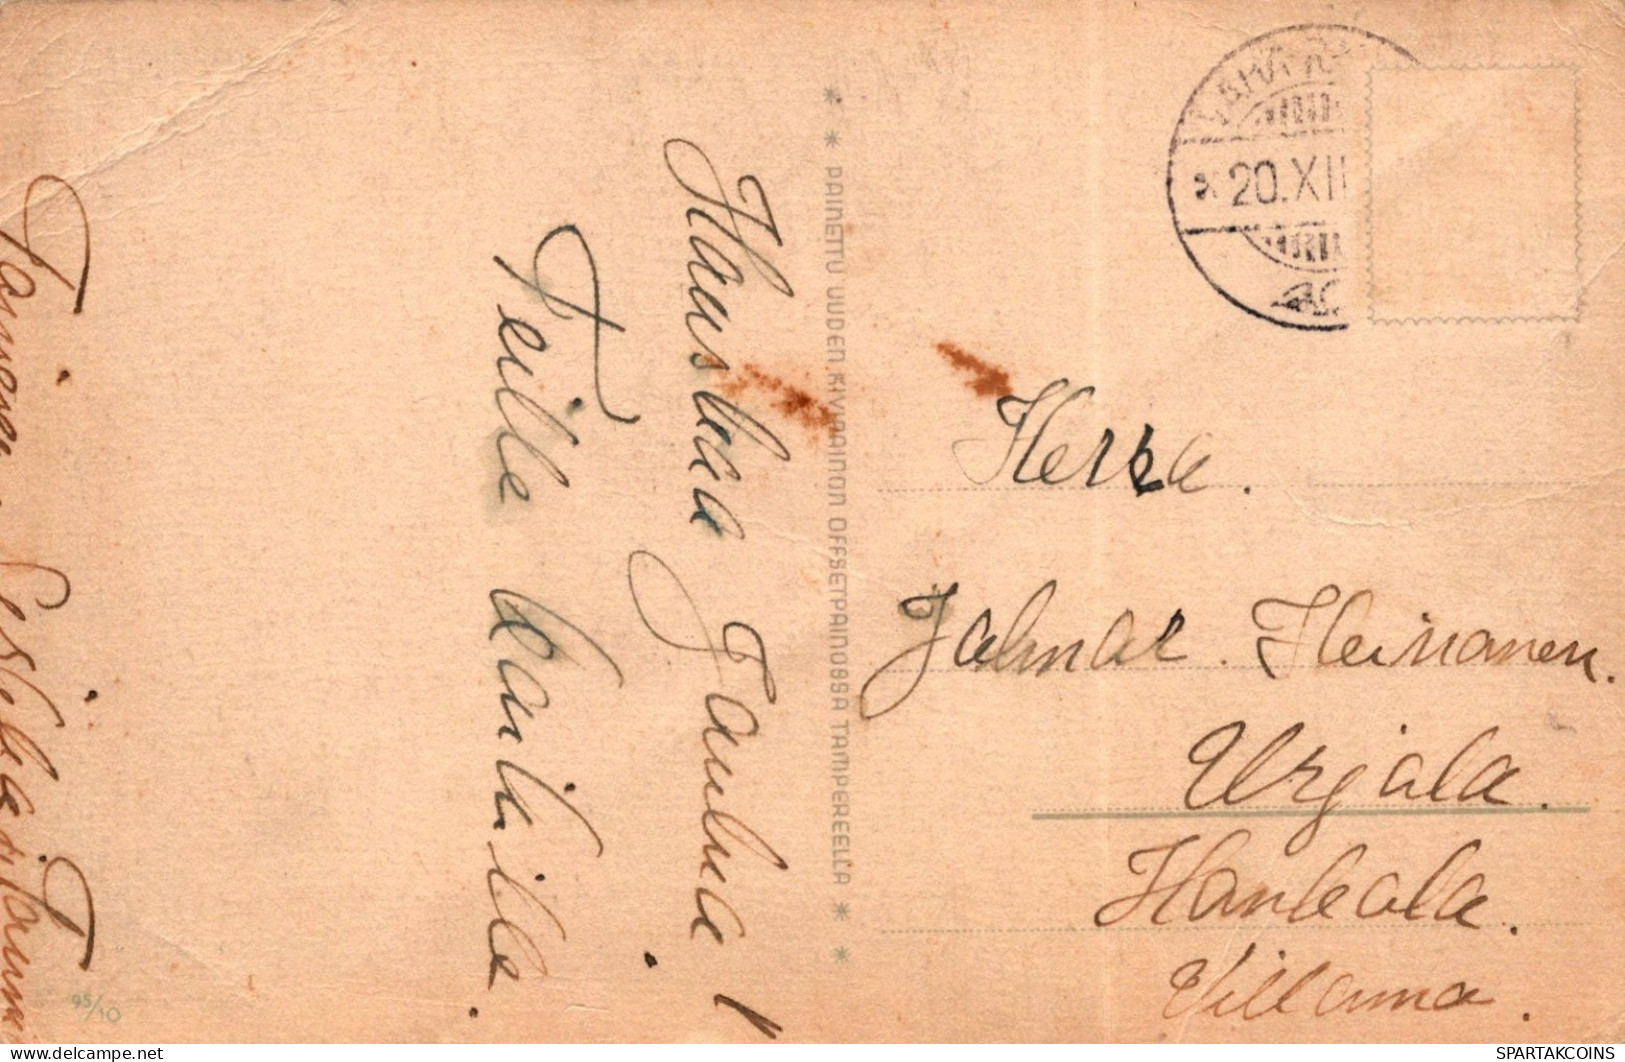 Hauskaa Joulua!
Teille kaikille.
20.XII
* * PAINETTU UUDEN KIVIPAINON OFFSETPAINOSSA TAMPEREELLA * *
Herra.
Jalmar. Heinonen.
Urjala.
Hankala.
Villamo.
95/10
delcampe.net
SPARTAKCOINS